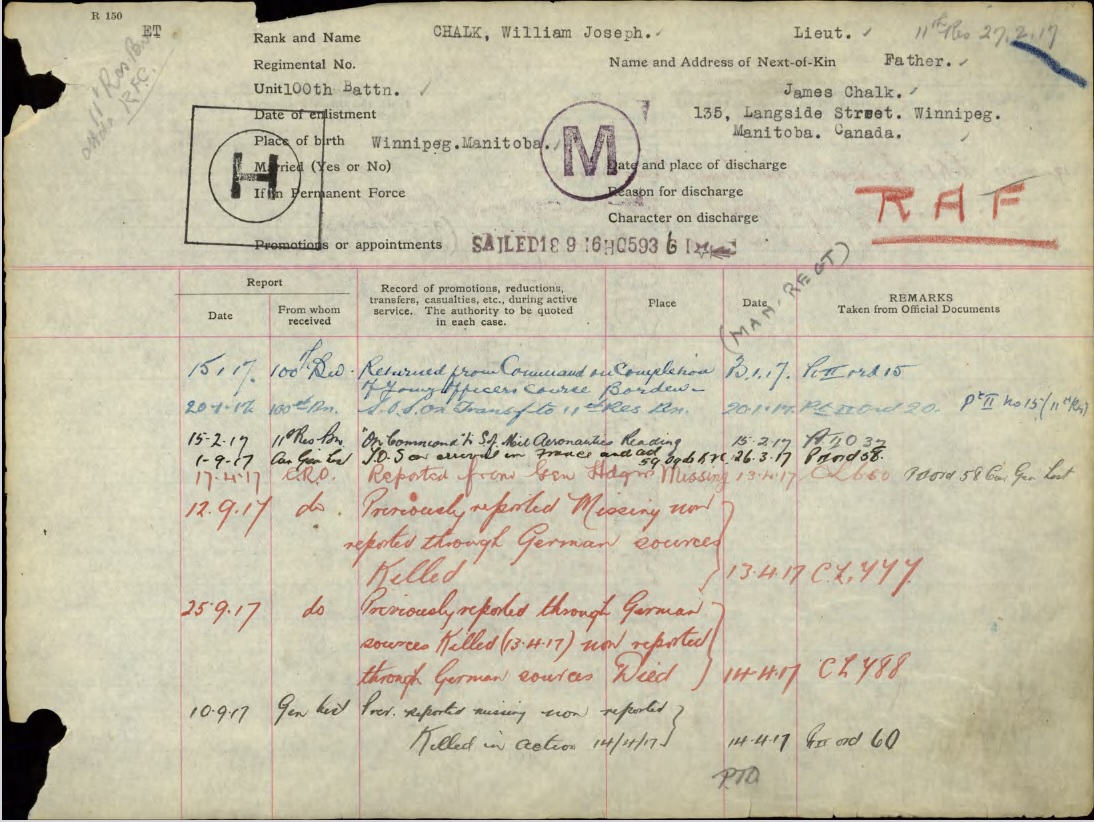 R 150
ET
11th Res Bn
R.F.C.
Rank and Name CHALK, William Joseph. Lieut. 11th Res 27.2.17
Regimental No. Name and Address of Next-of-Kin Father.
Unit 100th Battn. James Chalk.
Date of enlistment 135, Langside Street. Winnipeg.
Manitoba. Canada.
Place of birth Winnipeg.Manitoba.
H
M
Married (Yes or No) Date and place of discharge
If in Permanent Force Reason for discharge
Character on discharge
RAF
Promotions or appointments SAILED 18 9 16 HQ 593 6 1
(MAN. REGT)
Report
Date
From whom received
Record of promotions, reductions,
transfers, casualties, etc., during active
service. The authority to be quoted
in each case.
Place
Date
REMARKS
Taken from Official Documents
15.1.17. 100th Bn. Returned from Command on Completion 13.1.17. Pt II ord 15
of Young Officers Course Borden
20-1-17 100th Bn. S.O.S. on Transf to 11th Res Bn. 20.1.17. Pt II Ord 20. Pt II No 15 (11th Rn)
15-2-17 11th Res Bn "On Command" to S. of Mil Aeronautics Reading 15-2-17 Pt II O 37
1-9-17 Can Gen List T.O.S on arrival in France and 59 Sqdn 26.3.17 Pt II ord 58.
17.4.17 C.R.O. Reported from Gen Hdqrs Missing 13.4.17 CL 660 Pt II ord 58 Can Gen List
12.9.17 do Previously reported Missing now
reported through German sources
Killed 13.4.17 C.L. 477
25.9.17 do Previously reported through German
sources Killed (13.4.17) now reported
through German sources Died 14.4.17 CL 488
10.9.17 Gen List Prev. reported missing now reported
Killed in action 14/4/17 14.4.17 Pt II ord 60
PTO